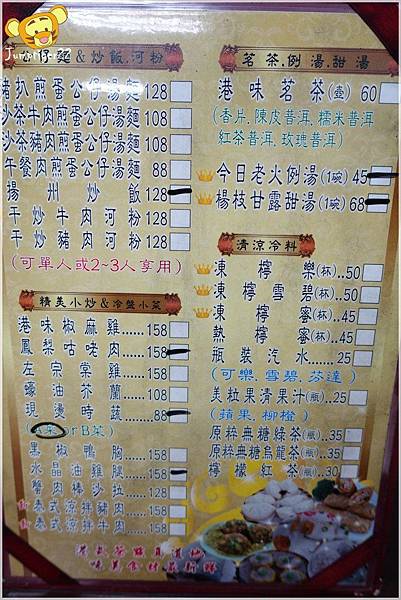 麵&炒飯.河粉
豬扒煎蛋公仔湯麵 128
沙茶牛肉煎蛋公仔湯麵 108
沙茶豬肉煎蛋公仔湯麵 108
午餐肉煎蛋公仔湯麵 88
揚州炒飯 128
干炒牛肉河粉 128
干炒豬肉河粉 128
(可單人或2~3人享用)
精美小炒&冷盤小菜
港味椒麻雞......158
鳳梨咕咾肉......158
左宗棠雞......158
蠔油芥蘭......108
現燙時蔬......88
黑椒鴨胸......158
水晶油雞腿......158
蟹肉棒沙拉......158
泰式涼拌豬肉......158
泰式涼拌牛肉......158
茗茶.例湯.甜湯
港味茗茶(壺) 60
(香片.陳皮普洱.糯米普洱
紅茶普洱.玫瑰普洱)
今日老火例湯(1碗) 45
楊枝甘露甜湯(1碗) 68
清涼冷料
凍檸樂(杯)..50
凍檸雪碧(杯)..50
凍檸蜜(杯)..45
熱檸蜜(杯)..45
瓶裝汽水......25
(可樂.雪碧.芬達)
美粒果清果汁(瓶)..25
(蘋果.柳橙)
原粹無糖綠茶(瓶)..35
原粹無糖烏龍茶(瓶)..35
檸檬紅茶(瓶)..30